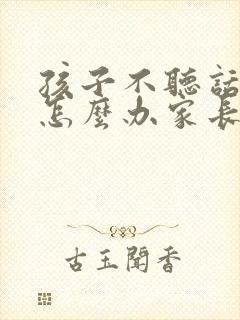 孩子不聽話
怎麼办家長
古玉聞香